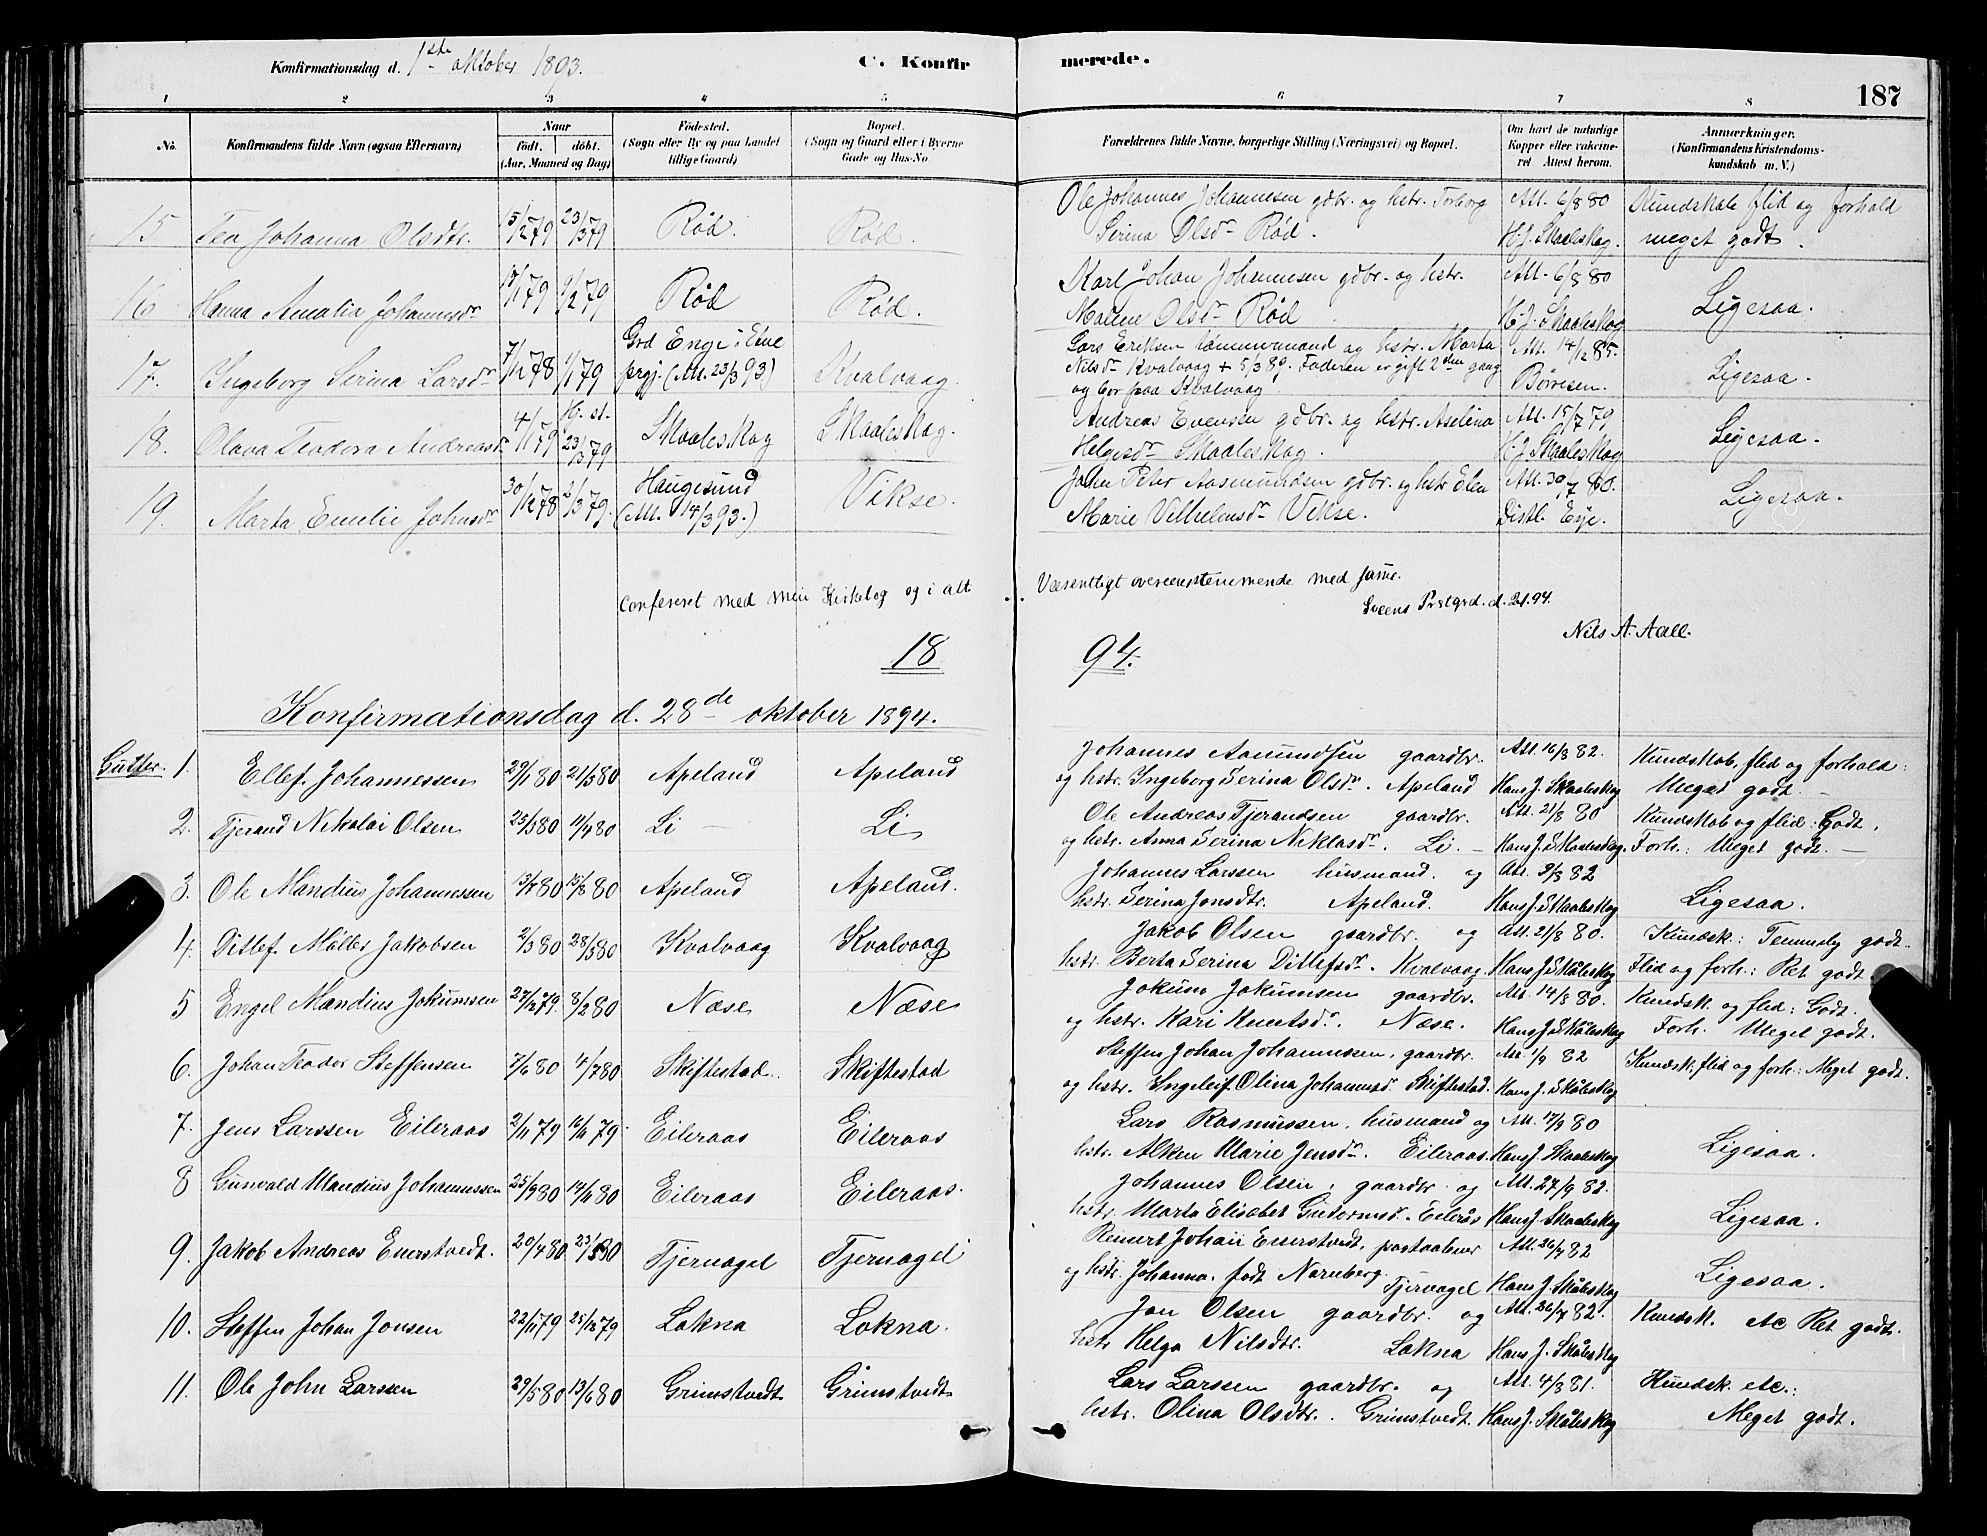 Konfirmationsdag d. 1ste oktober 1893.
C. Konfirmerede.
187
1 2 3 4 5 6 7 8
No. Konfirmandens fulde Navn (ogsaa Efternavn) Naar født. døbt. (Aar, Maaned og Dag) Fødested. (Sogn eller By og paa Landet tillige Gaard) Bopæl. (Sogn og Gaard eller i Byerne Gade og Hus-No Forældrenes fulde Navne, borgerlige Stilling (Næringsvei) og Bopæl. Om havt de naturlige Kopper eller vakcineret. Attest herom. Anmærkninger. (Konfirmandens Kristendomskundskab m. V.)
15 Tea Johanna Olsdtr. 15/2 79 23/3 79 Rød. Rød. Ole Johannes Johannesen gdbr. og hstr. Torborg Att. 6/8 80 Kundskab flid og forhold
Serina Olsdr Rød. H. J. Skaaleskog. meget godt.
16 Hanna Amalia Johannesdr 10/1 79 9/2 79 Rød Rød. Karl Johan Johannesen gdbr. og hstr. Att. 6/8 80
Malene Olsdr Rød H. J. Skaaleskog Ligesaa.
17. Ingeborg Serina Larsdr 7/12 78 1/1 79 Grd Enge i Etne prgj. (Att. 23/3 93) Kvalvaag. Lars Eriksen husmand og hstr. Marta Att. 14/12 85.
Nilsdr Kvalvaag + 5/3 89. Faderen er gift 2den gang
og bor paa Kvalvaag Børresen. Ligesaa.
18. Olava Teodora Andreasdr 4/1 79 Hj. st. 23/3 79 Skaaleskog Skaaleskog. Andreas Evensen gdbr. og hstr. Aselina Att. 15/7 79
Helgesdr Skaaleskog. H. J. Skaaleskog Ligesaa.
19. Marta Emelie Johnsdr 30/12 78 2/3 79. Haugesund (Att. 14/3 93.) Vikse. John Peter Aasmundsen gdbr. og hstr Elen Att. 30/7 80.
Marie Vilhelmsdr Vikse. Distl. Eye. Ligesaa.
Confereret med min Kirkebog og i alt Væsentligt overeensstemmende med samme.
Sveens Prstgrd. d. 2/1. 94.
Nils A. Aall.
18 94.
Konfirmationsdag d. 28de oktober 1894.
Gutter. 1. Ellef Johannessen 29/1 80 21/3 80 Apeland Apeland Johannes Aamundsen gaardbr. Att. 16/8 82. Kundskab, flid og forhold:
og hstr. Ingeborg Serina Olsdr. Apeland Hans J. Skaaleskog Meget godt. —
2. Tjerand Nikolai Olsen 23/3 80 11/4 80 Li — Li Ole Andreas Tjerandsen gaardbr. Att. 21/8 80 Kundskab og flid: Godt.
og hstr. Anna Serina Niklasdr. Li. — Hans J. Skaaleskog. Forh.: Meget godt. —
3. Ole Mandius Johannessen 13/7 80 15/8 80 Apeland Apeland. Johannes Larssen husmand. og Att. 9/8 82
hstr. Serina Jonsdtr. Apeland. Hans J. Skaaleskog Ligesaa.
4. Ditlef Møller Jakobsen 2/3 80 28/3 80 Kvalvaag Kvalvaag Jakob Olsen gaardbr. og Att. 21/8 80. Kundsk.: Temmelig godt.
hstr. Berta Serina Ditlefsdr. Kvalvaag. Hans J. Skåleskog Flid og forh.: Ret godt.
5 Engel Mandius Jokumsen 27/12 79. 8/2 80 Næse Næse Jokum Jokumsen gaardbr. Att. 14/8 80. Kundsk. og flid: Godt.
og hstr. Kari Knutsdr. Næse. Hans J. Skåleskog Forh. Meget godt.
6. Johan Teodor Steffensen 7/6 80 4/7 80 Skiftestad. Skiftestad Steffen Johan Johannessen, gaardbr. Att. 1/9 82 Kundsk, flid og forh: Meget godt.
og hstr. Ingeleif Olina Johannesdr Skiftestad. Hans J. Skåleskog
7. Jens Larssen Eileraas 2/11 79 16/11 79. Eileraas Eileraas Lars Rasmussen, husmand og Att. 17/9 80
hstr. Alken Marie Jensdr. Eileraas. Hans J. Skaaleskog Ligesaa.
8 Gunvald Mandius Johannessen 25/9 80 14/11 80 Eileraas Eileraas. Johannes Olsen, gaardbr. og Att. 27/9 82.
hstr. Marta Elisabet Gutormsdr. Eileråes Hans J. Skaaleskog Ligesaa.
9. Jakob Andreas Enerstvedt. 20/4 80 23/5 80 Tjernagel Tjernagel Reinert Johan Enerstvedt, postaabner Att. 26/7 82
og hstr. Johanna. født Nørnberg. Tjernagel Hans J. Skåleskog Ligesaa.
10. Steffen Johan Jonsen 22/11 79 25/12 79 Lokna Lokna. Jon Olsen gaardbr. og Att. 26/7 82. Kundsk. etc Ret godt.
hstr Helga Nilsdtr. Lokna Hans J. Skåleskog
11. Ole John Larssen 29/5 80 13/6 80 Grimstvedt Grimstvedt Lars Larssen gaardbr. og Att. 4/8 81. Kundsk. etc.:
hstr. Olina Olsdtr. Grimstvedt. Hans J. Skåleskog Meget godt.